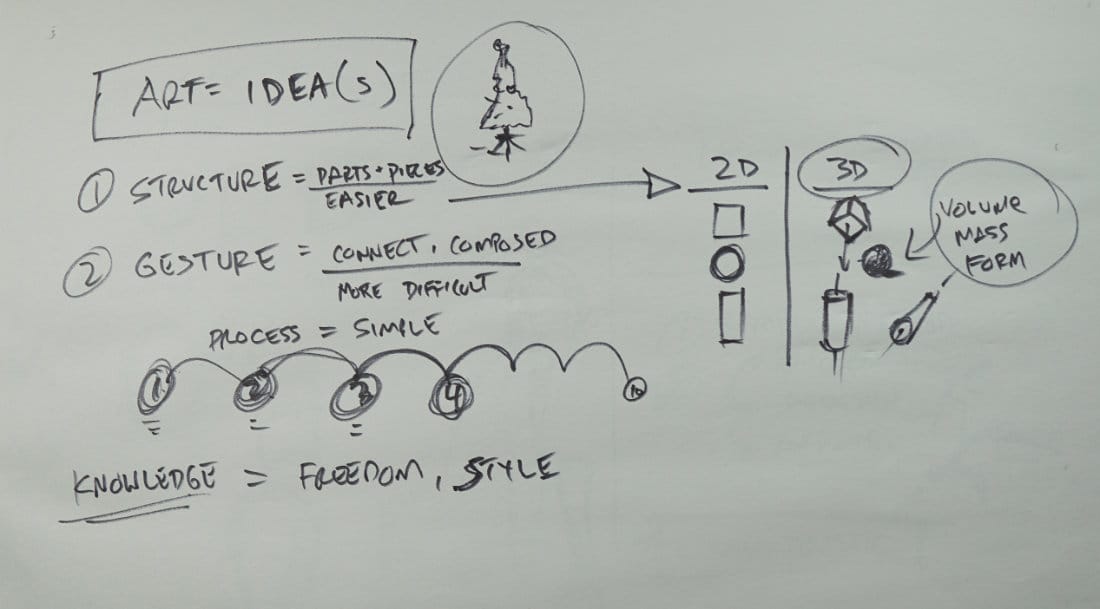 ART = IDEA(S)
① STRUCTURE = PARTS + PIECES
EASIER
② GESTURE = CONNECT, COMPOSED
MORE DIFFICULT
PROCESS = SIMPLE
1 2 3 4 10
KNOWLEDGE = FREEDOM, STYLE
2D 3D
VOLUME
MASS
FORM